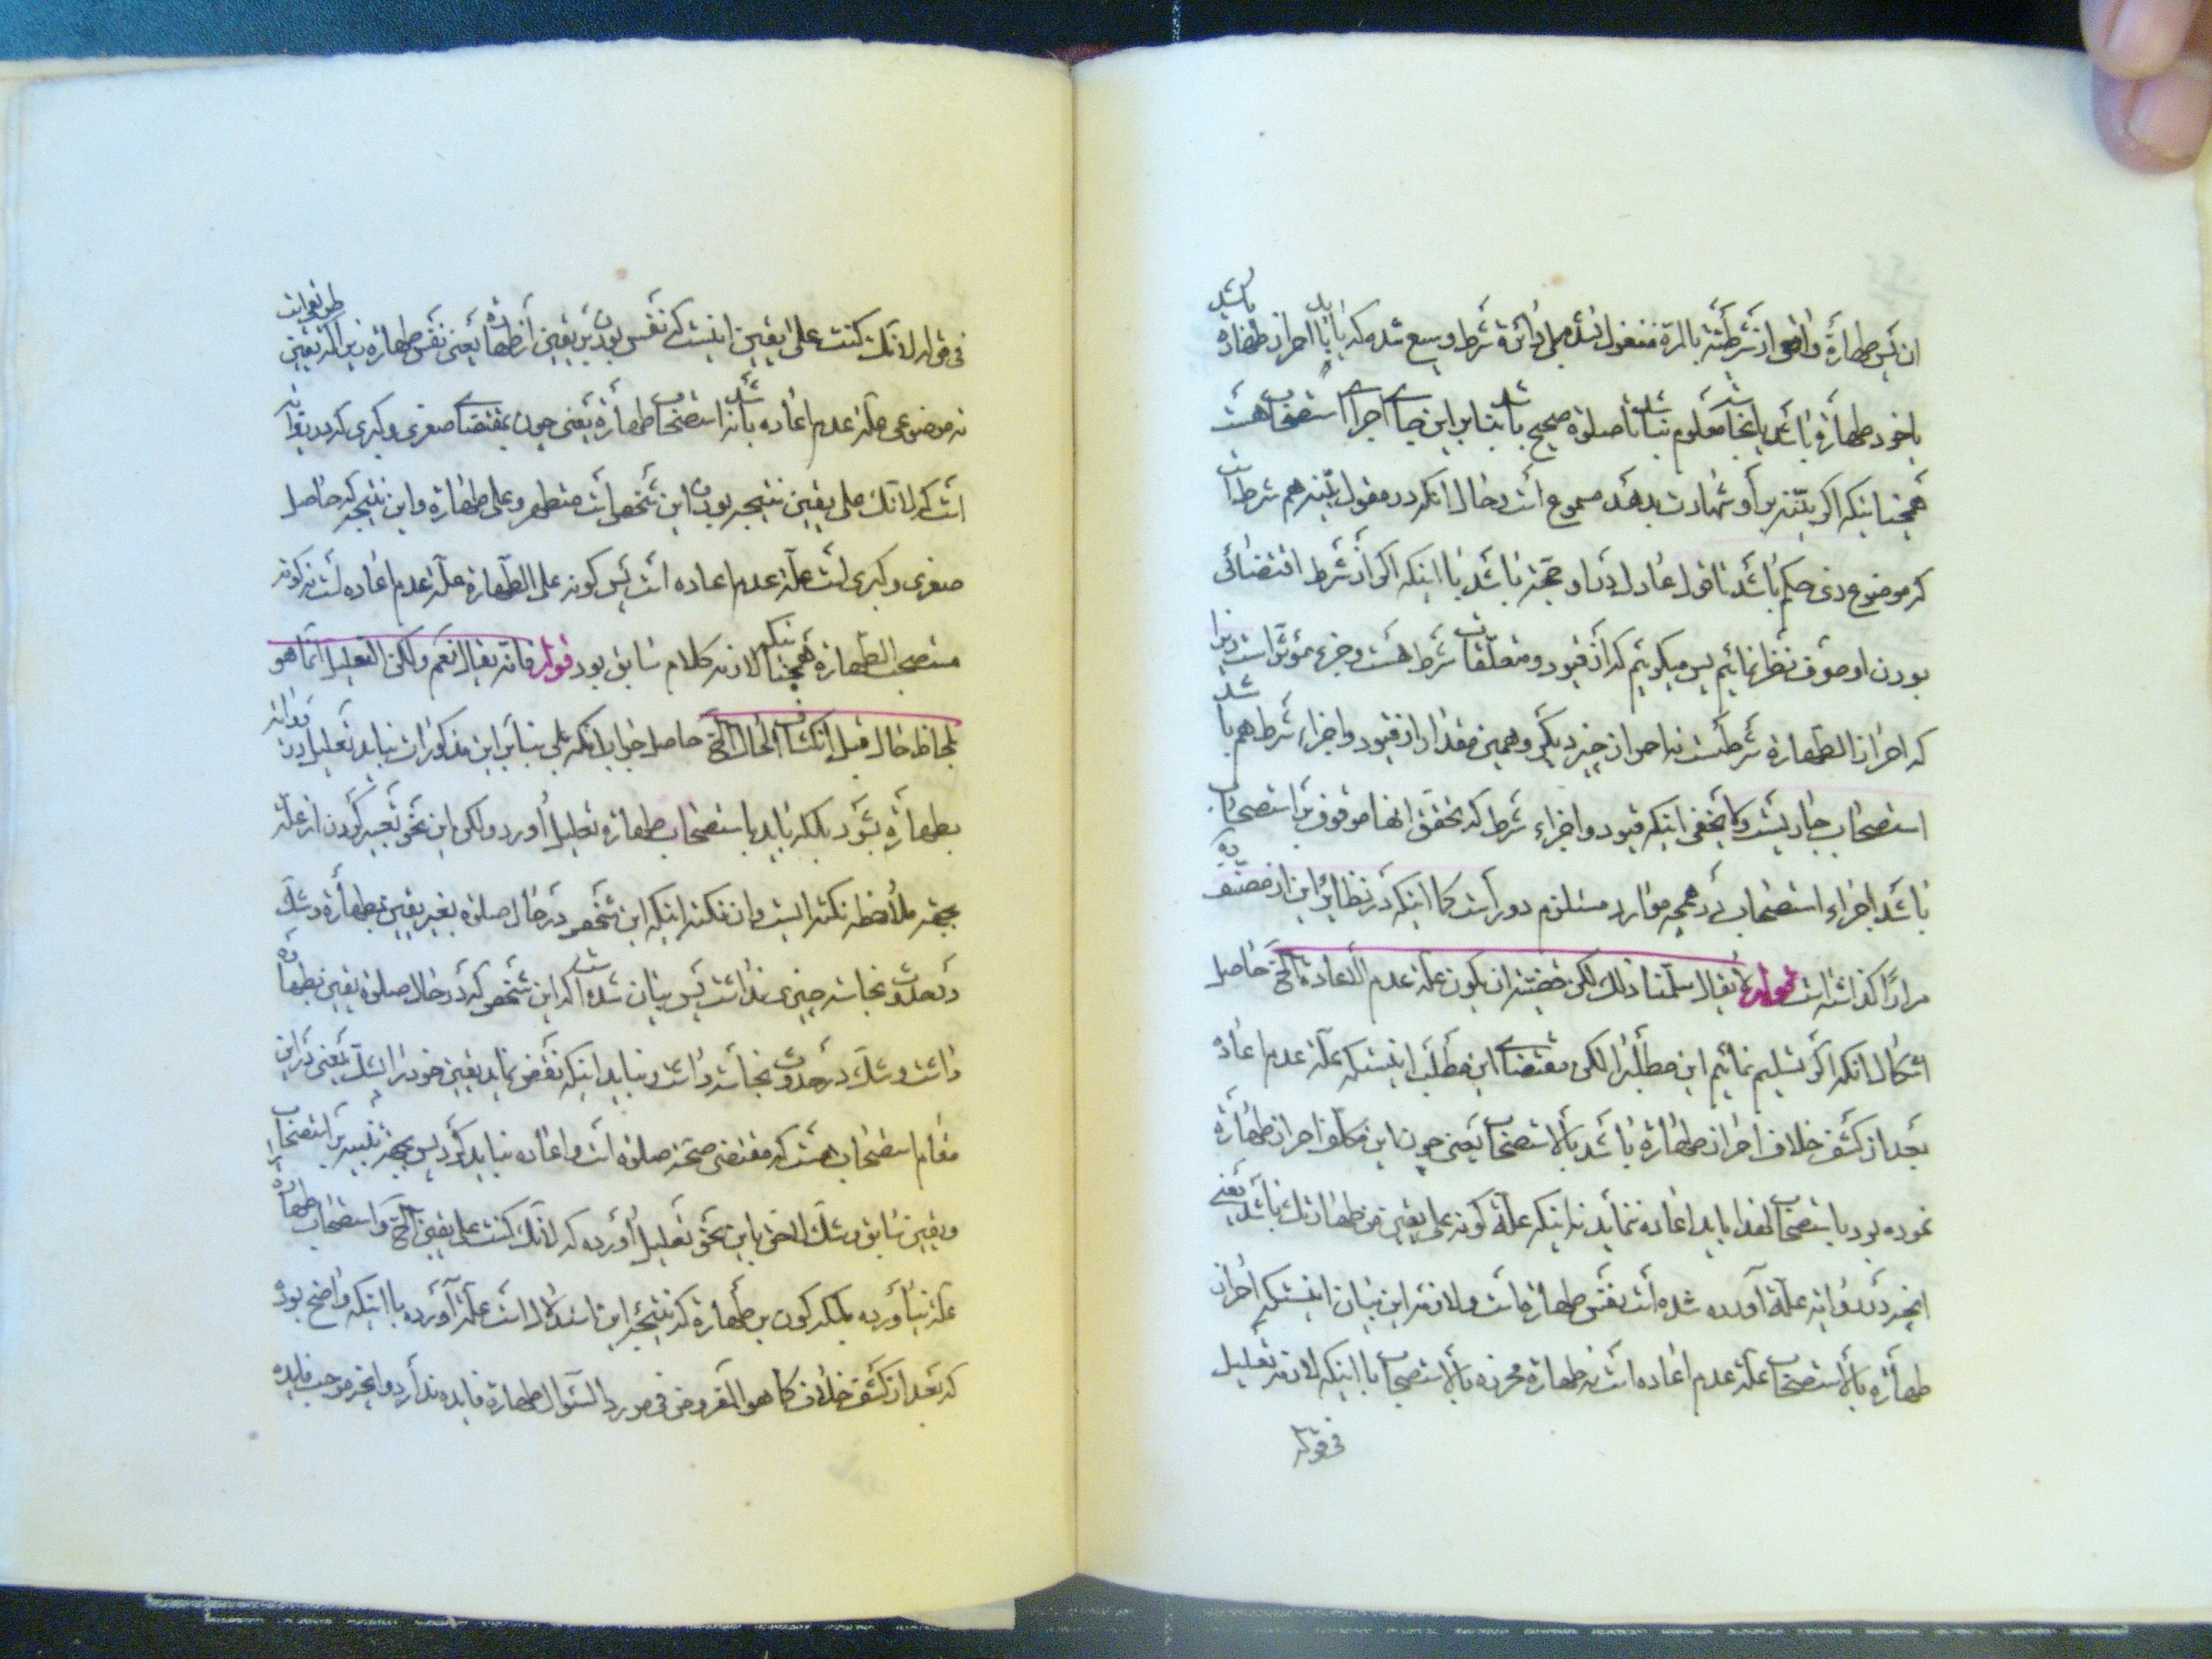 ان پس طهارة واقعی از شرطیته بالمرة منعزل نشده بلی دائرة شرط وسیع شده که باید یا احراز طهارة باشد
یا خود طهارة باشد یا اینجا معلوم شد نباشد تا صلوة صحیح باشد بنابر این جای اجرای استصحاب هست
همچنانینکه اگر بینه بر او شهادت بدهد مسموع است و حال آنکه در مقول بینه هم شرط است
که موضوع ذی حکم باشد تا قول عادل در او حجة باشد با اینکه اگر از شرط اقتضائی
بودن او صرف نظر نمائیم پس میگوئیم که از قیود و متعلقات شرط هست و جزء مؤثر است زیرا
که احراز الطهارة شرطست نه احراز چیز دیگر و همین مقدار از قیود و اجزاء شرط هم باشد
استصحاب جاریست و لا یخفی اینکه قیود و اجزاء شرط که تحقق انها موقوف بر استصحاب
باشد اجراء استصحاب در همچه موارد مستلزم دور است کما اینکه در نظائر این از مصنف ره
مرارًا گذاشته است قوله لا یقال سلمنا ذلک لکن قضیته ان یکون علة عدم الاعادة الخ حاصل
اشکال انکه اگر تسلیم نمائیم این مطلب را لکن مقتضای این مطلب اینستکه علة عدم اعاده
بعد از کشف خلاف احراز طهارة باشد بالاستصحاب یعنی چون این مکلف احراز طهارة
نموده بود باستصحاب لهذا باید اعاده ننماید نه اینکه علة کونه علی یقین من طهارتک باشد یعنی
انچه در روایة علة آورده شده است نفس طهارة است و لازمه این بیان اینستکه احراز
طهارة بالاستصحاب علة عدم اعاده است نه طهارة محرزه بالاستصحاب با اینکه لازمه تعلیل
فی قوله
فی قوله لانک کنت علی یقین اینست که نفس بودن بر یقین از طهارة یعنی نفس طهارة زیرا که یقین طریقی است
نه موضوعی علة عدم اعاده باشد نه استصحاب طهارة یعنی چون بمقتضای صغری و کبری که در روایة
است که لانک علی یقین نتیجه بودن این شخص است متطهر و علی طهارة و این نتیجه که حاصل
صغری و کبری است علة عدم اعاده است پس کونه علی الطهارة علة عدم اعاده است نه کونه
مستصحب الطهارة همچنانکه لازمه کلام سابق بود قوله فانه یقال نعم ولکن التعلیل انما هو
بلحاظ حال قبل انکشاف الحال الخ حاصل جواب انکه بلی بنابر این مذکورات نباید تعلیل در روایة
بطهارة بشود بلکه باید باستصحاب طهارة تعلیل آورد ولکن این نحو تعبیر کردن از علة
بجهة ملاحظه نکته ایست و ان نکته اینکه این شخص در حال صلوة بغیر یقین بطهارة و شک
در حدوث نجاسة چیزی نداشت پس بیان شده است که این شخص که در حال صلوة یقین بطهارة
داشت و شک در حدوث نجاسة داشت و نباید اینکه نقض نماید یقین خود را بشک یعنی در این
مقام استصحاب هست که مقتضی صحة صلوة است و اعاده نباید کرد پس بجهة تنبیه بر استصحاب
و یقین سابق و شک لاحق باین نحو تعلیل آورده که لانک کنت علی یقین الخ و استصحاب طهارة را
علة نیاورده بلکه کون بر طهارة که نتیجه این استدلال است علة آورده با اینکه واضح بود
که بعد از کشف خلاف کما هو المفروض فی مورد السؤال طهارة فایده ندارد و انچه موجب فایده